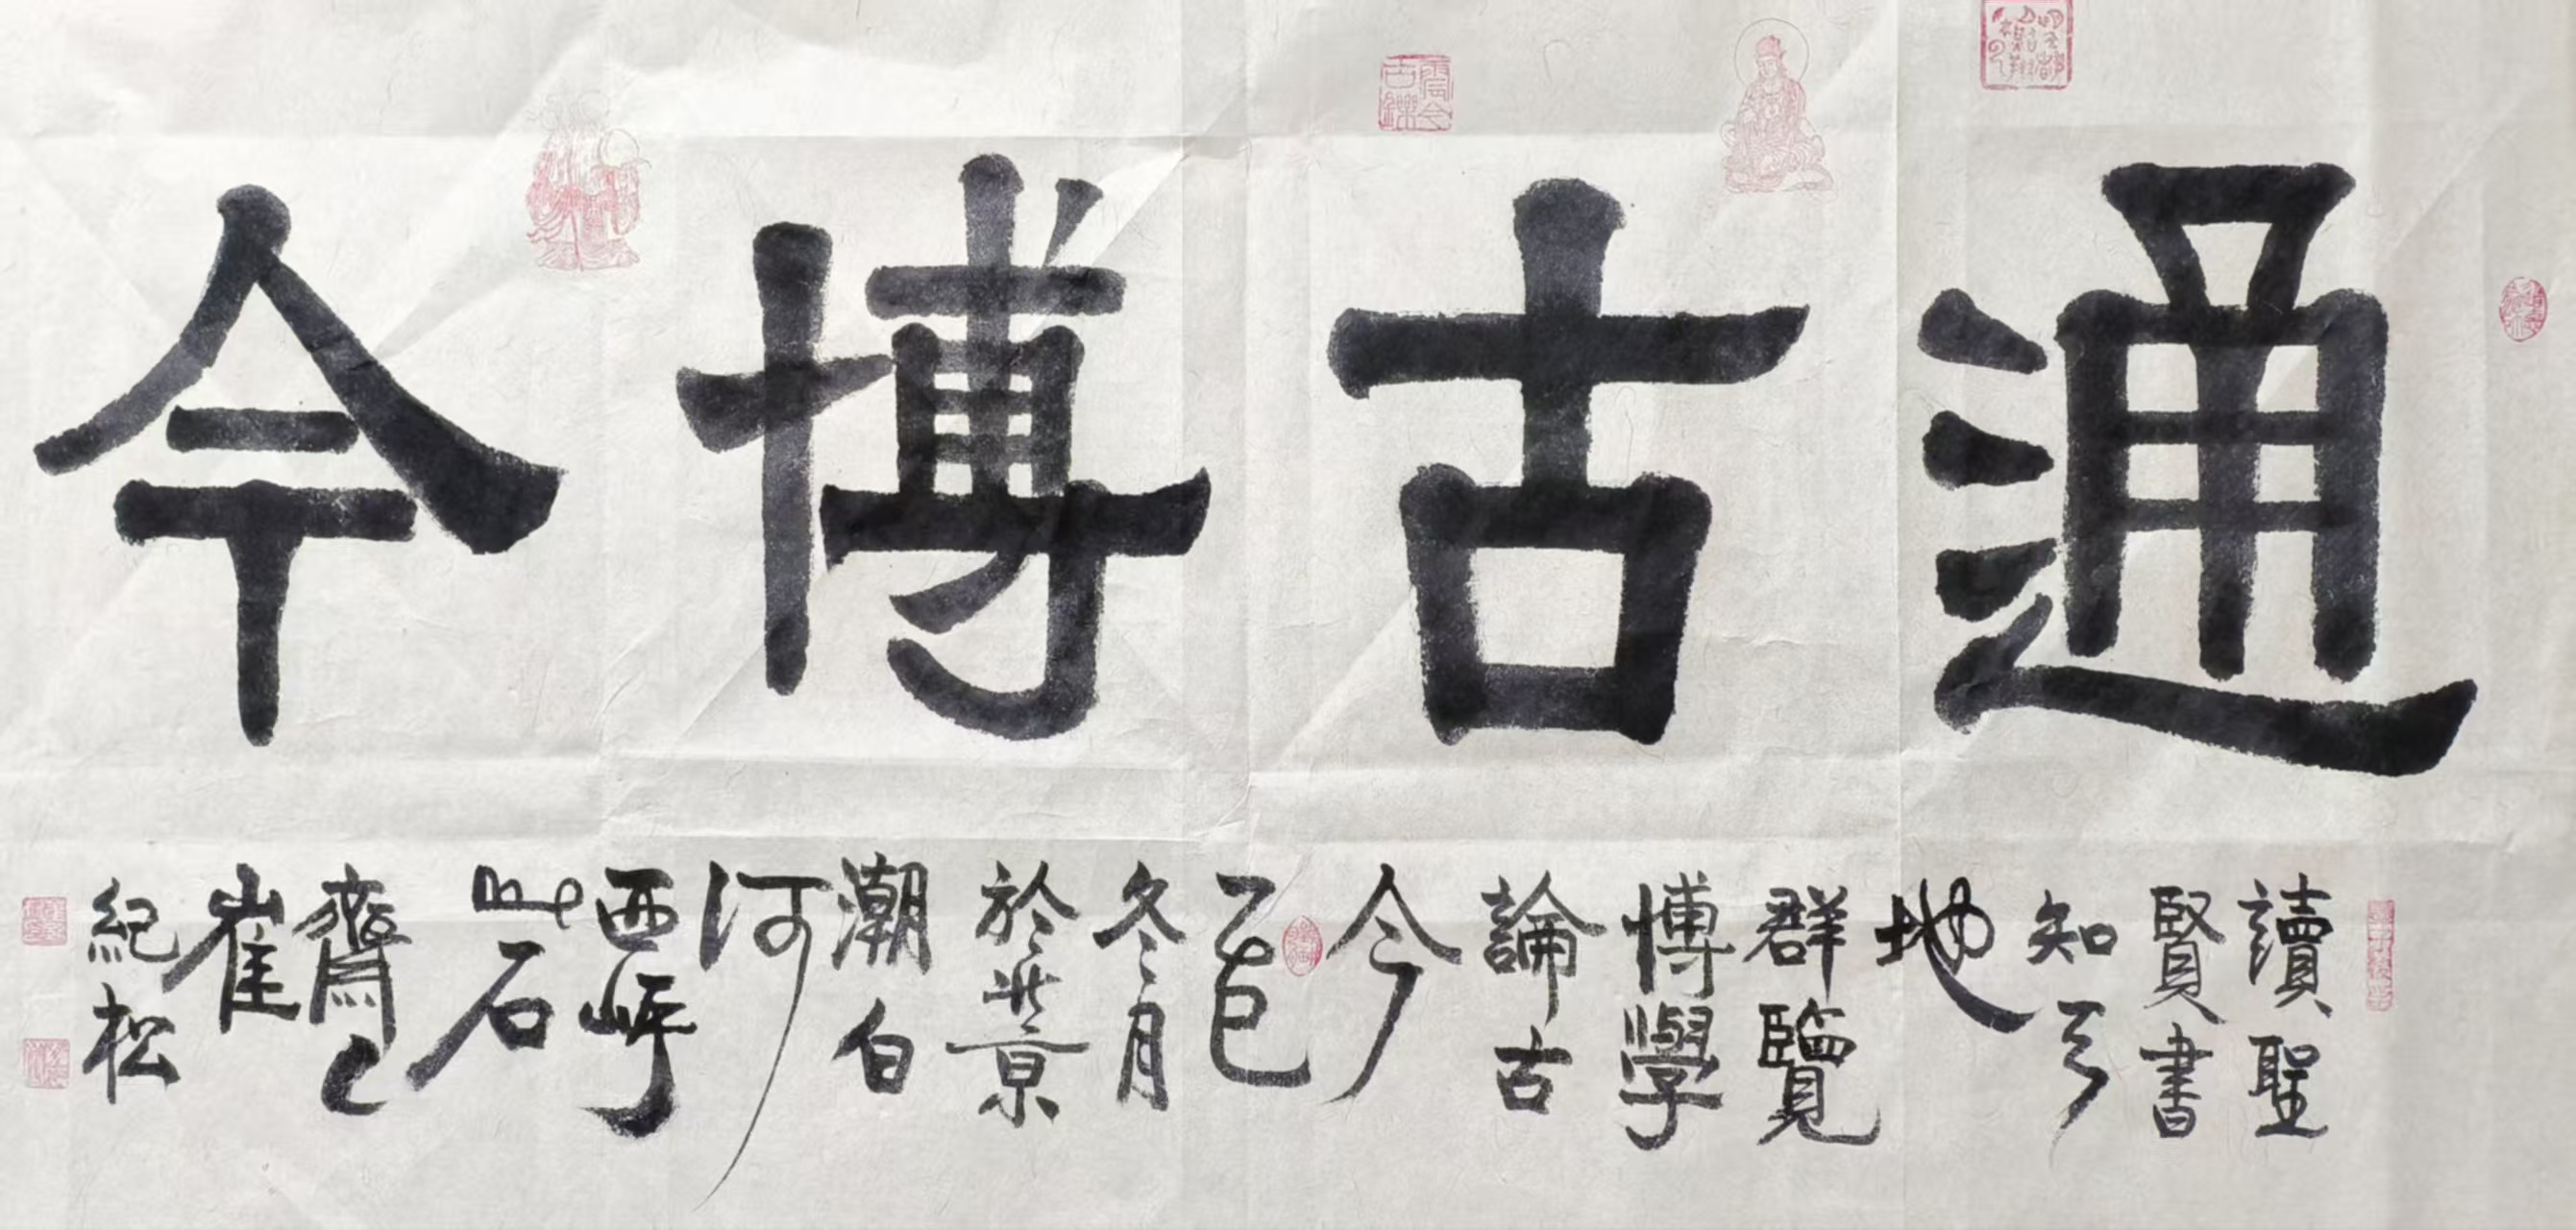 通古博今
讀聖
賢書
知天
地
群覽
博學
論古
今
乙巳
冬月
於北京
潮白
河
西岸
石
齋
崔
紀松